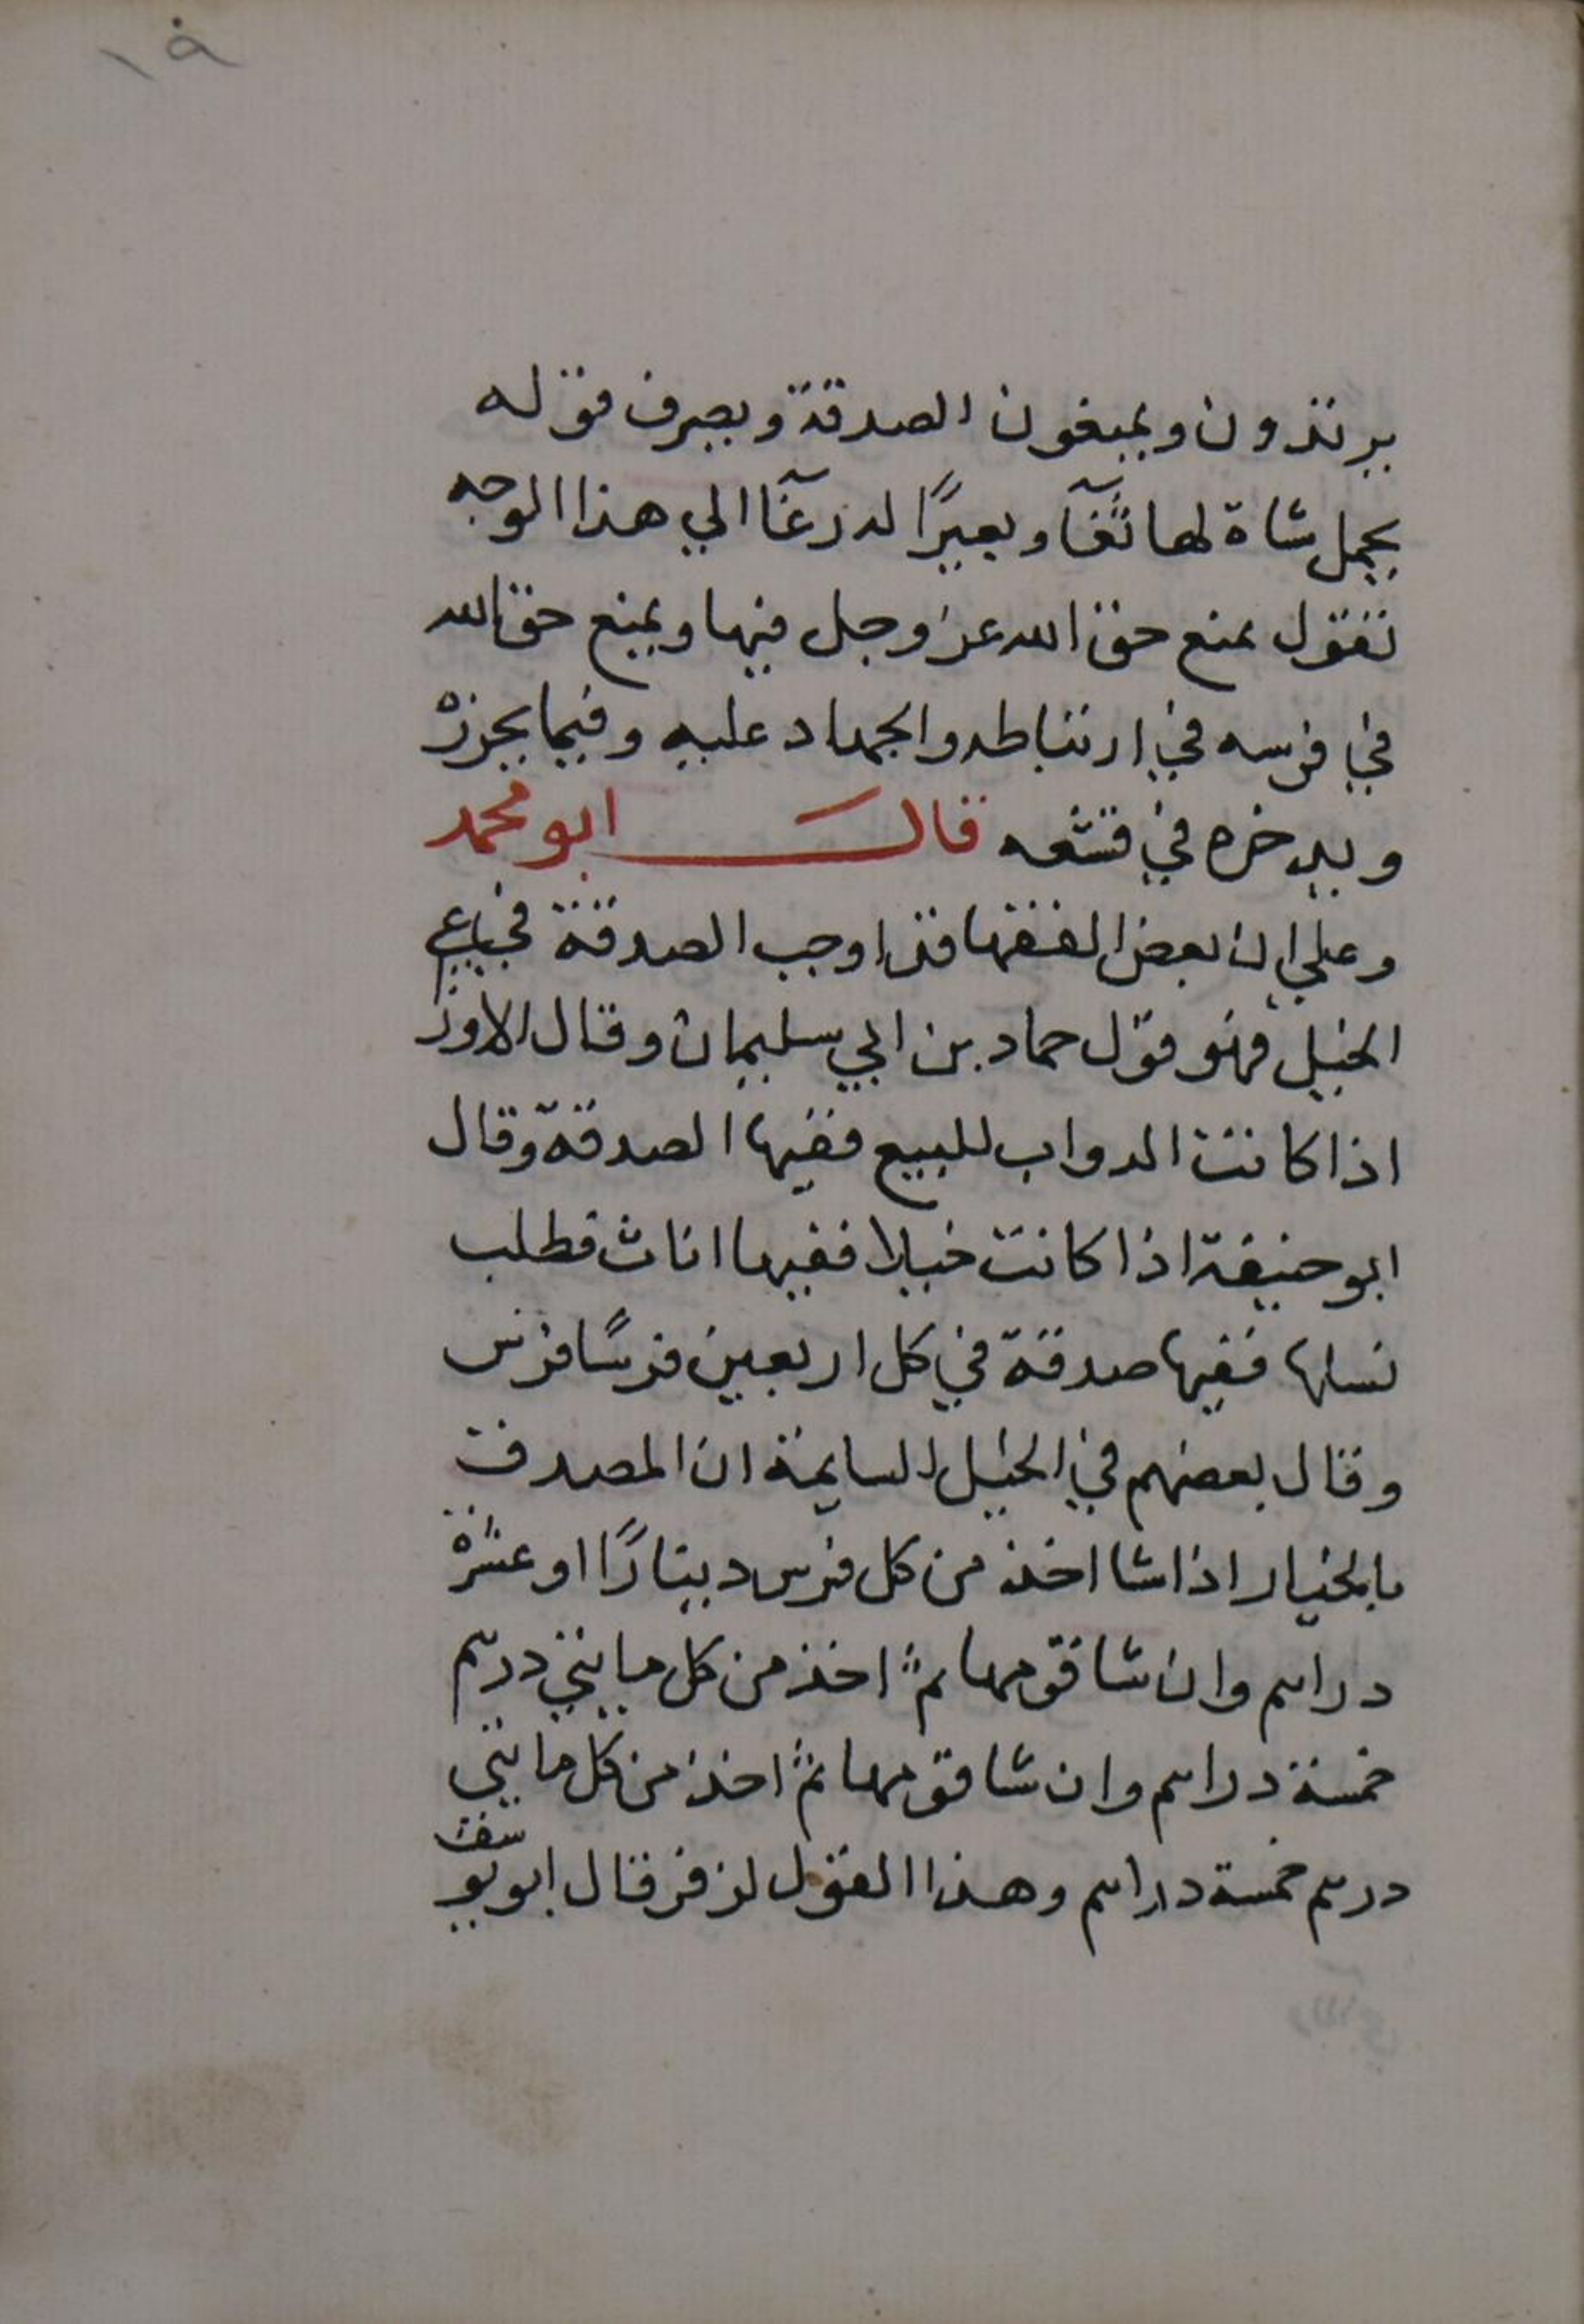 ١٩
يرتدون ويمنعون الصدقة ويصرف قوله
يحمل شاة لها ثغآ وبعيرًا له رغآ الي هذا الوجه
تفتول بمنع حق الله عز وجل فيها ويمنع حق الله
في فرسه في ارتباطه والجهاد عليه وفيما يحرزه
ويدخره في قشعه قال ابو محمد
وعلي ان بعض الفقها قد اوجب الصدقة في
الخيل فهو قول حماد بن ابي سليمان وقال الاوز
اذا كانت الدواب للبيع ففيها الصدقة وقال
ابو حنيفة اذا كانت خيلا ففيها اناث فطلب
نسلها ففيها صدقة في كل اربعين فرسًا فرس
وقال بعضهم في الخيل السايمة ان المصدق
بالخيار اذا شا اخذ من كل فرس دينارًا او عشرة
دراهم وان شا قومها ثم اخذ من كل مايتي درهم
خمسة دراهم وان شا قومها ثم اخذ من كل مايتي
درهم خمسة دراهم وهذا القول لزفر قال ابو يوسف